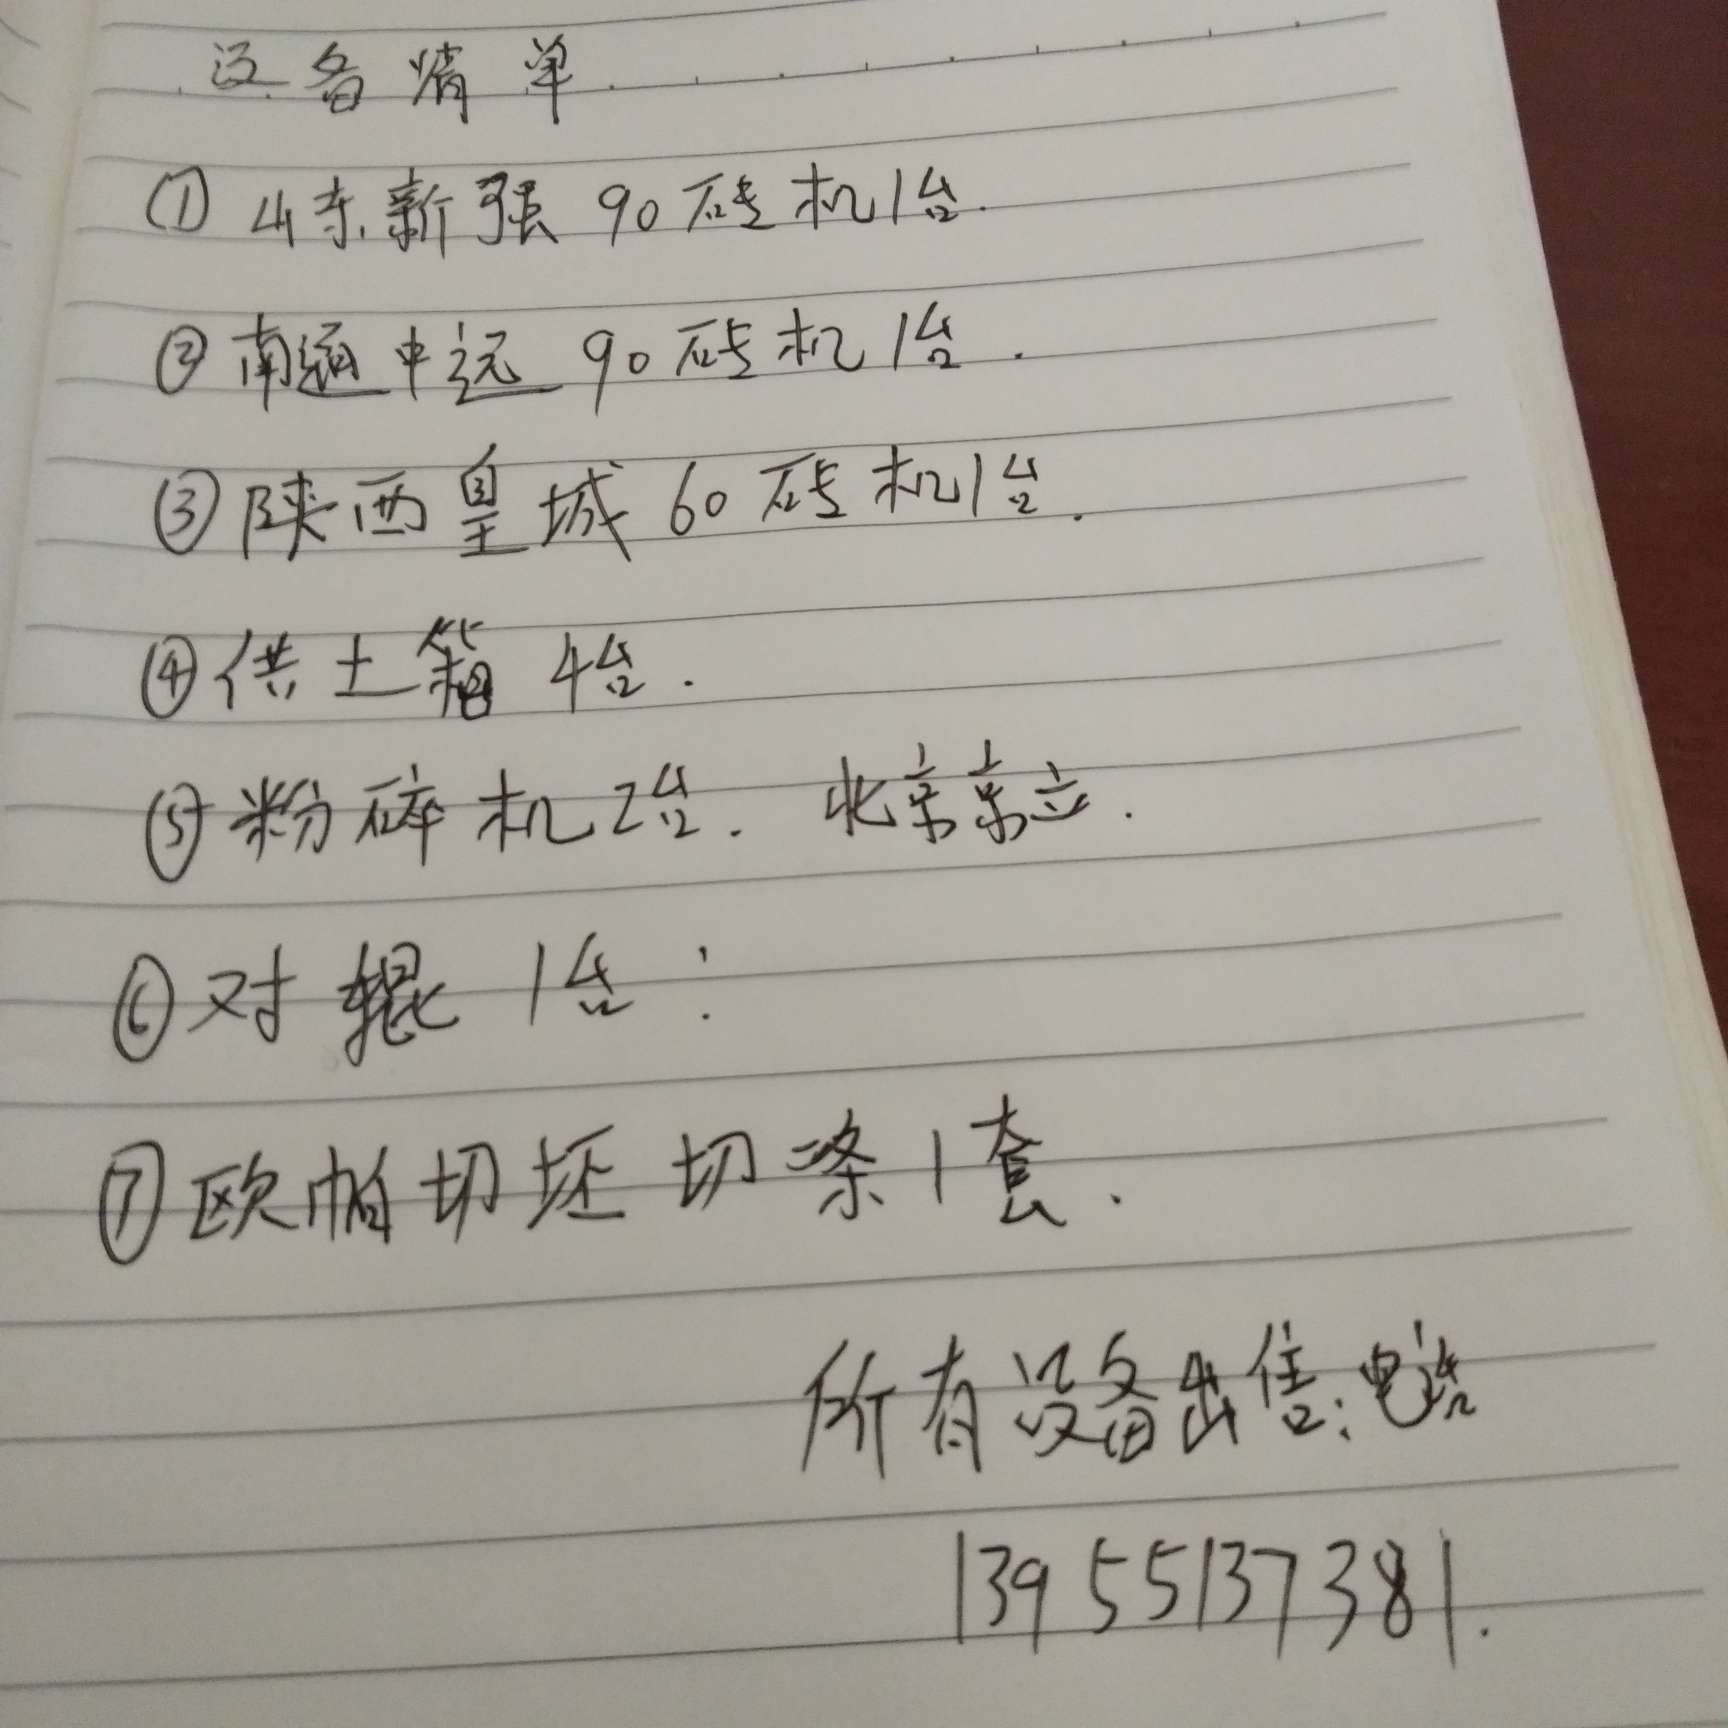 设备清单
① 山东新强 90砖机1台.
② 南通中远 90砖机1台.
③ 陕西皇城 60砖机1台.
④ 供土箱 4台.
⑤ 粉碎机2台. 北京京立.
⑥ 对辊 1台:
⑦ 欧帕切坯切条1套.
所有设备出售:电话
13955137381.